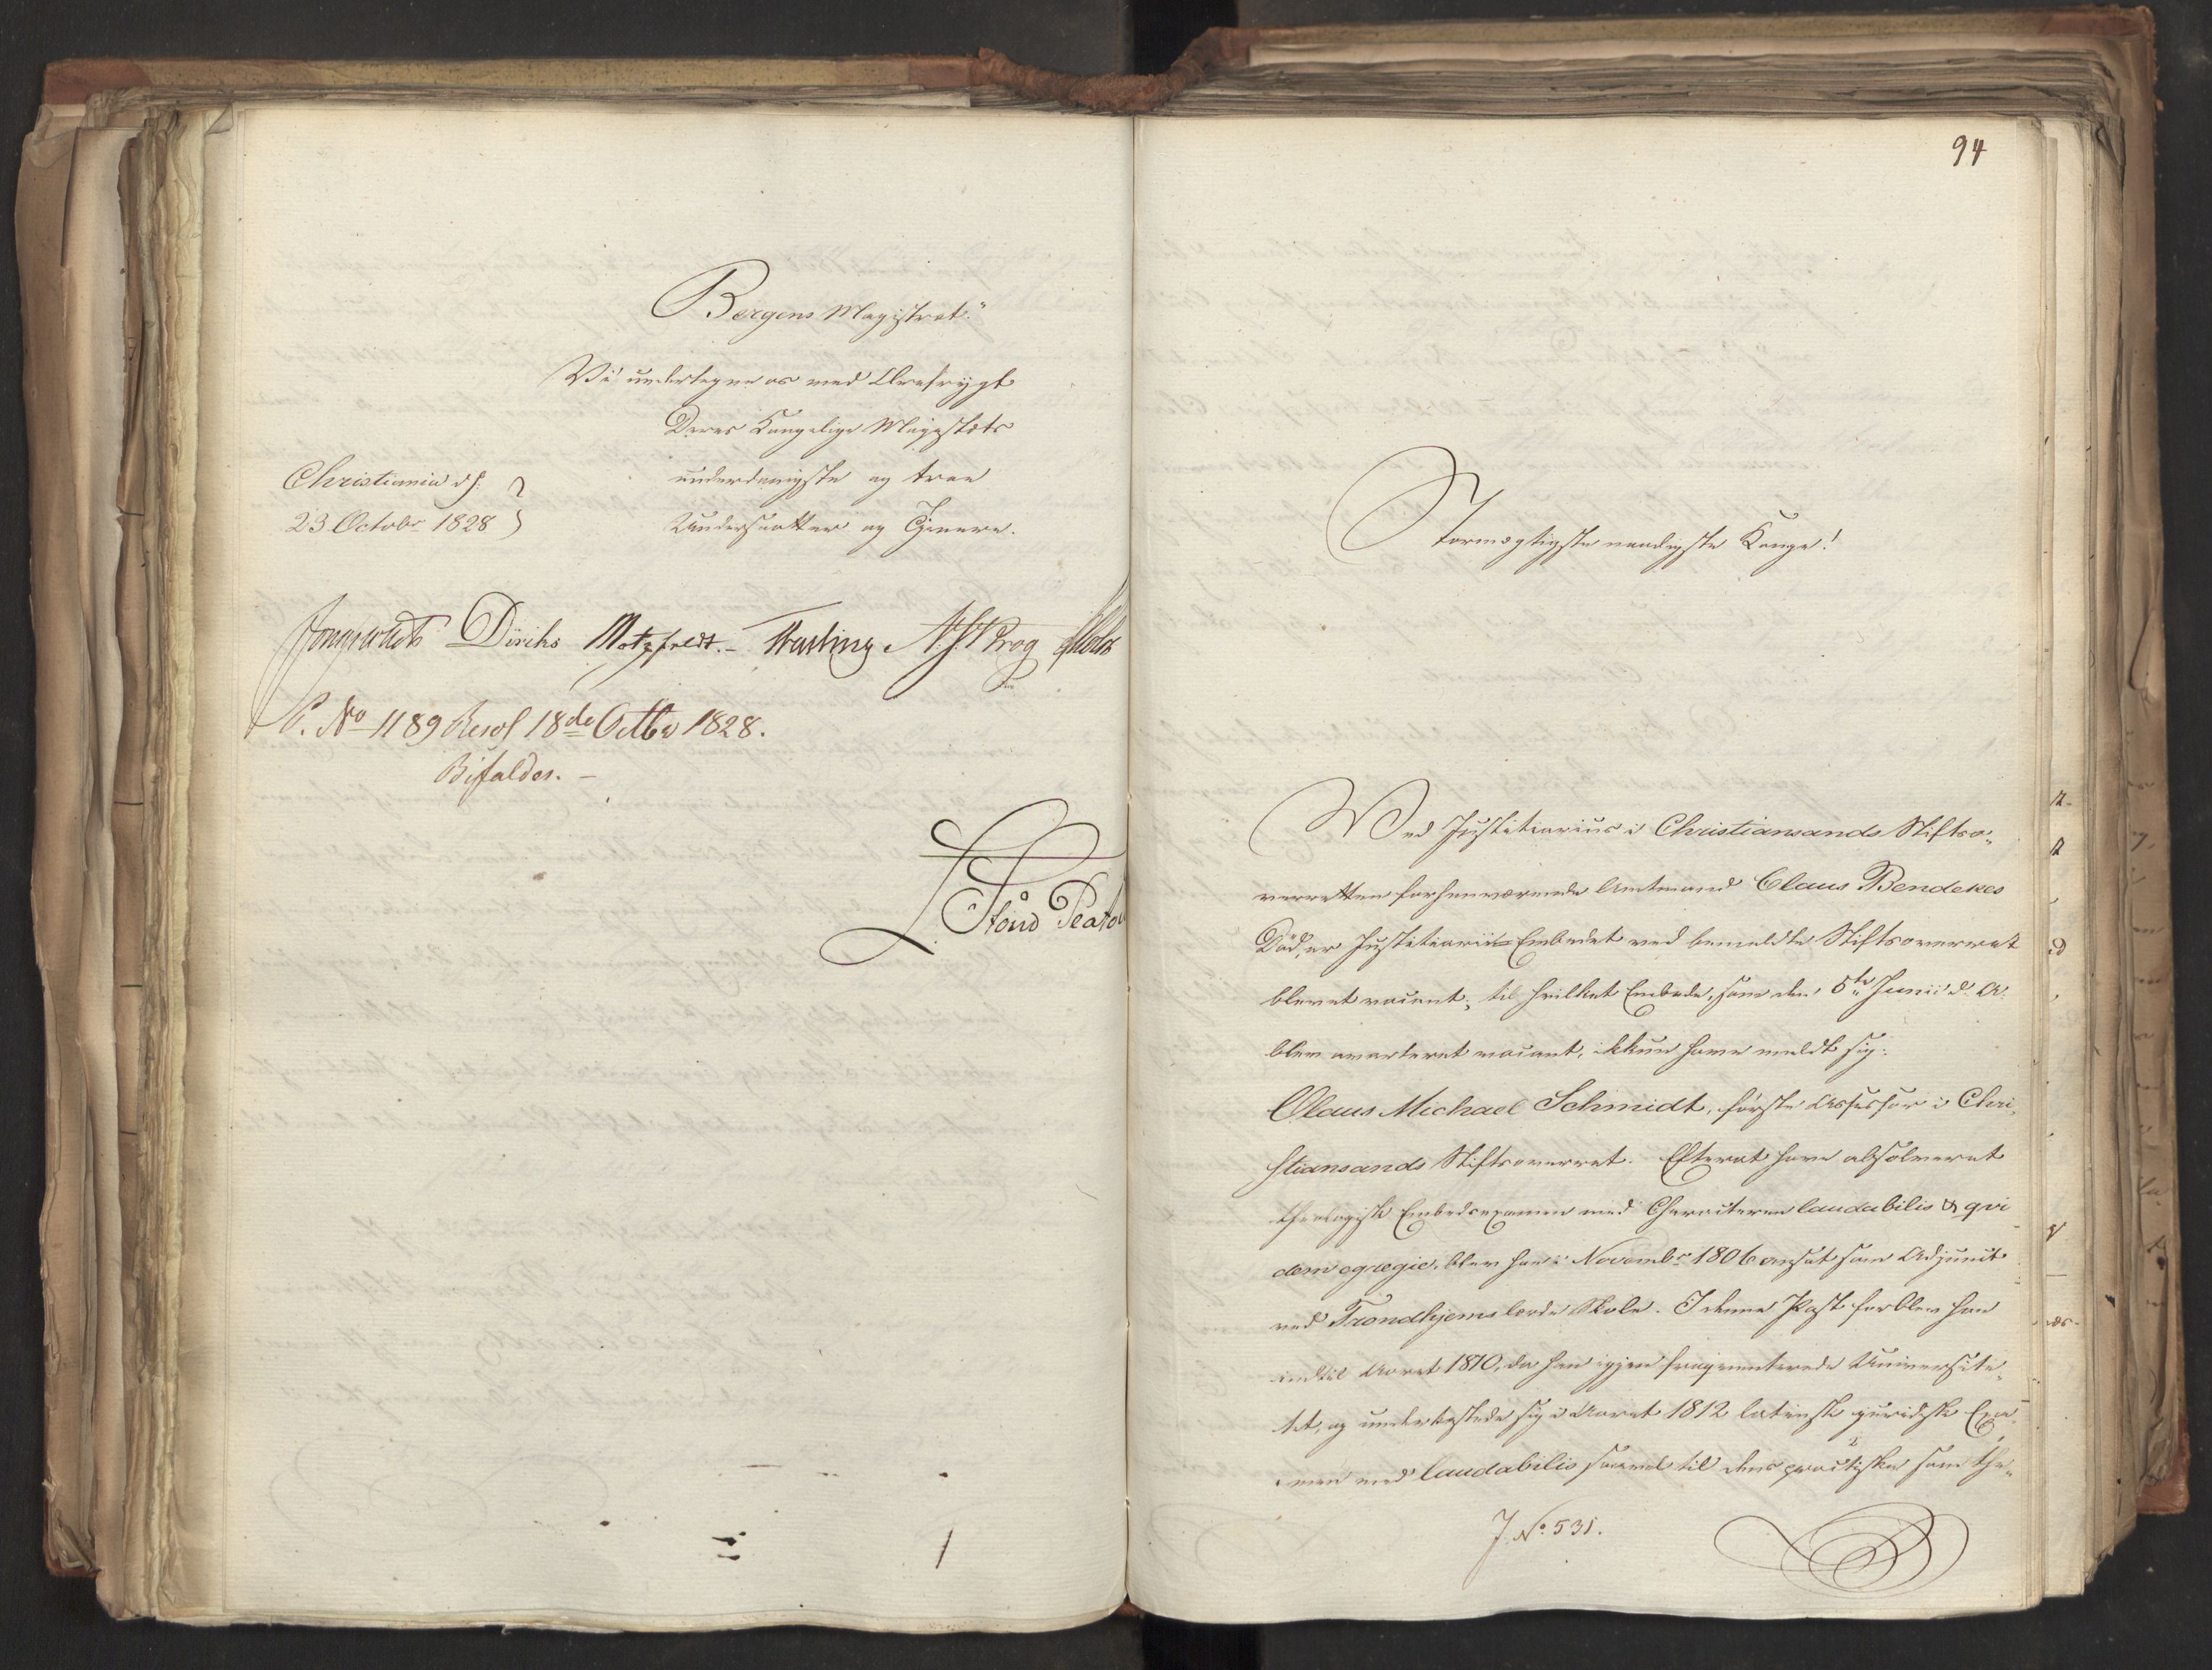 Bergens Magistrat."
Vi undertegne os med Ærefrygt
Deres Kongelige Majestæts
underdanigste og troe
Undersaatter og Tjenere.
Christiania d:
23 Octobr 1828
Diriks Motzfeldt. N. J. Krog
P. No 1189 Resol 18de Octbr 1828.
Bifaldes. —
94
Stormægtigste naadigste Konge!
Ved Justitiarius i Christiansands Stiftso-
verretten forhenværende Amtmand Claus Bendekes
Död, er Justitiarii-Embedet ved bemeldte Stiftsoverret
blevet vacant, til hvilket Embede, som den 5te Junii d. A.
blev averteret vacant, ikkun have meldt sig:
Olaus Michael Schmidt, förste Assessor i Chri-
stiansands Stiftsoverret. Efterat have absolveret
theologisk Embedsexamen med Characteren laudabilis & qvi
dem egregie, blev han i Novembr 1806 ansat som Adjunct
ved Trondhjems lærde Skole. I denne Post forblev han
indtil Aaret 1810, da han igjen freqventerede Universite-
tet, og underkastede sig i Aaret 1812 latinsk juridisk Exa-
men med laudabilis saavel til den practiske som the-
J. No. 531.